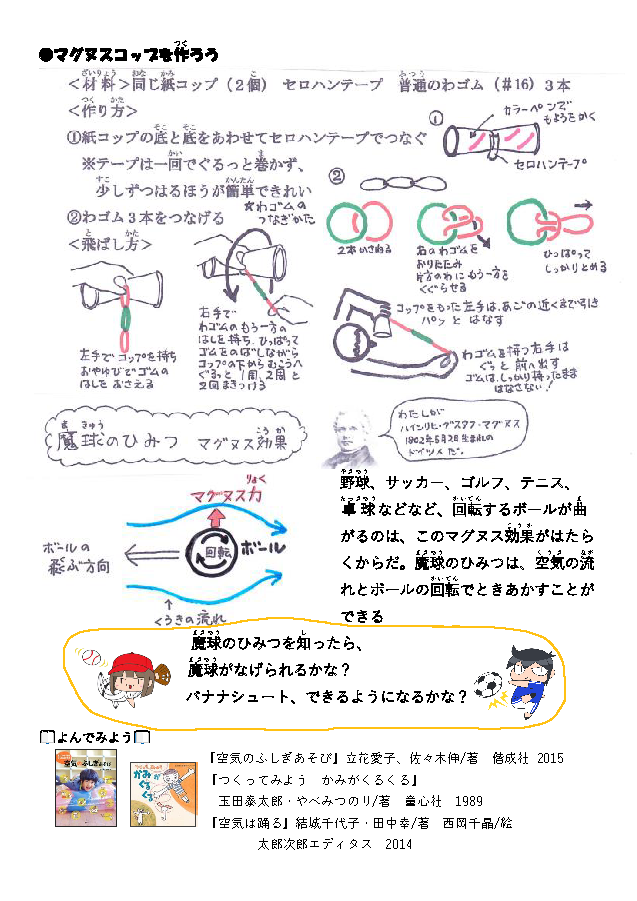 ●マグヌスコップを作ろう
＜材料＞同じ紙コップ（2個） セロハンテープ 普通のわゴム（#16）3本
＜作り方＞
①紙コップの底と底をあわせてセロハンテープでつなぐ
※テープは一回でぐるっと巻かず、
少しずつはるほうが簡単できれい
②わゴム3本をつなげる
①
カラーペンで
もようをかく
セロハンテープ
②
★わゴムの
つなぎかた
2本かさねる
右のわゴムを
おりたたみ
片方のわにもう一方を
くぐらせる
ひっぱって
しっかりとめる
＜飛ばし方＞
左手でコップを持ち
おやゆびでゴムの
はしをおさえる
右手で
わゴムのもう一方の
はしを持ち、ひっぱって
ゴムをのばしながら
コップの下からむこうへ
ぐるっと1周、2周と
2回まきつける
コップをもった左手は、あごの近くまで引き
パッとはなす
わゴムを持つ右手は
ぐっと前へ出す
ゴムは、しっかり持ったまま
はなさない！
魔球のひみつ マグヌス効果
わたしが
ハインリヒ・グスタフ・マグヌス
1802年5月2日生まれの
ドイツ人だ。
マグヌス力
ボールの
飛ぶ方向
回転
ボール
くうきの流れ
野球、サッカー、ゴルフ、テニス、
卓球などなど、回転するボールが曲
がるのは、このマグヌス効果がはたら
くからだ。魔球のひみつは、空気の流
れとボールの回転でときあかすことが
できる
魔球のひみつを知ったら、
魔球がなげられるかな？
バナナシュート、できるようになるかな？
よんでみよう
『空気のふしぎあそび』立花愛子、佐々木伸/著 偕成社 2015
『つくってみよう かみがくるくる』
玉田泰太郎・やべみつのり/著 童心社 1989
『空気は踊る』結城千代子・田中幸/著 西岡千晶/絵
太郎次郎エディタス 2014